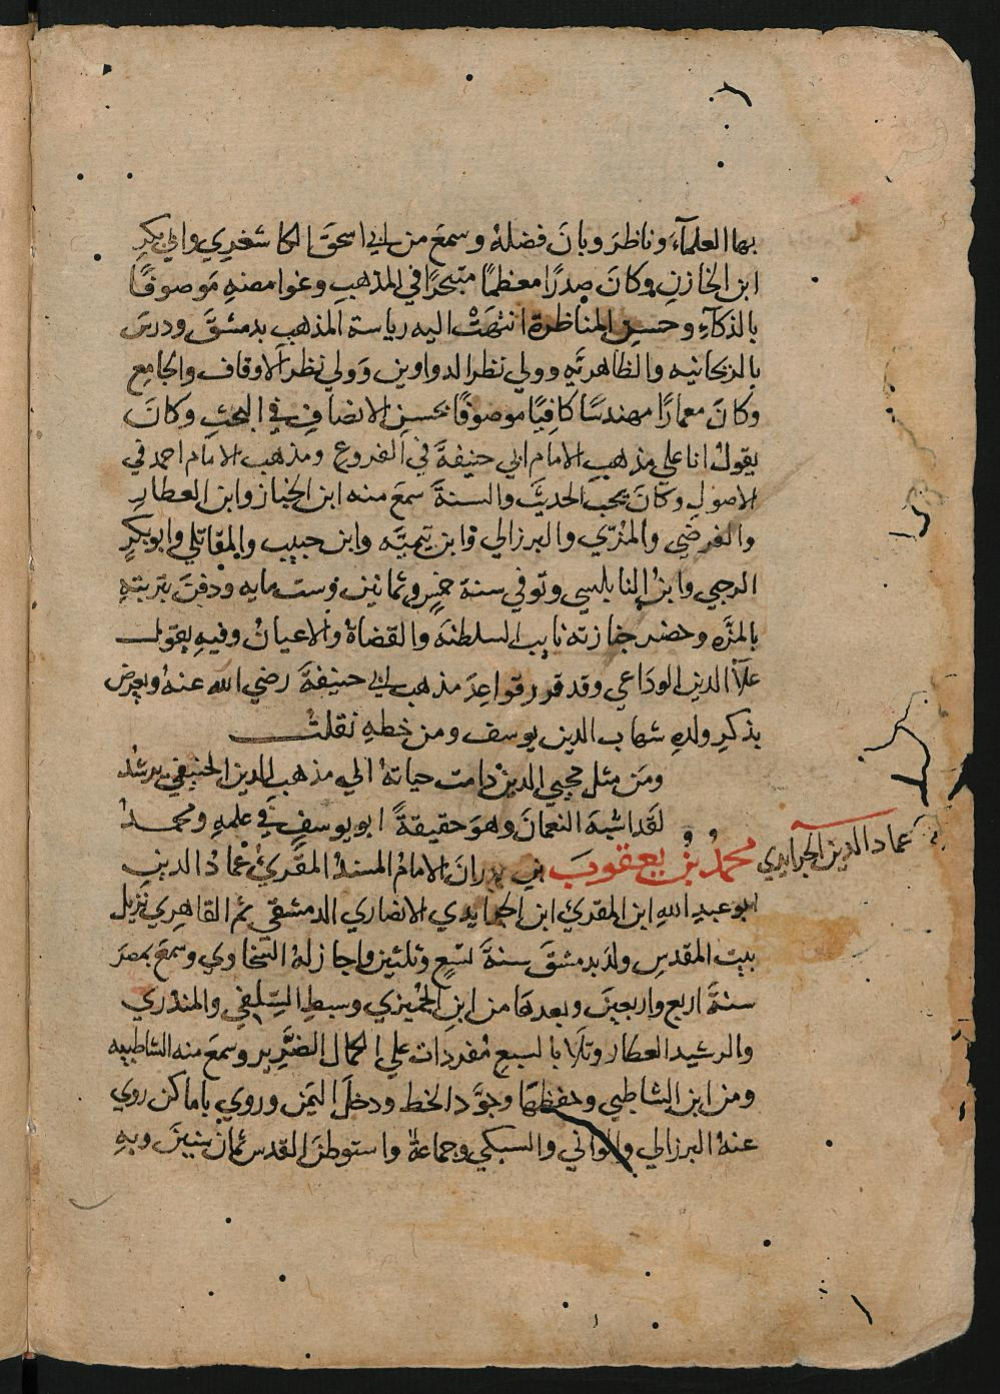 بها العلمآء وناظرَ وبانَ فضلهُ وسمعَ من ابي اسحقَ الكاشغري وابي بكرِ
ابن الخازنِ وكانَ صدرًا معظمًا متبحرًا في المذهبِ وغوامضهِ مَوصوفًا
بالذكآءِ وحسنِ المناظرة انتهَتْ اليه رياسة المذهبِ بدمشقَ ودرسَ
بالريحانيه والظاهريَّهِ وولي نظر الدواوين وَولي نظر الاوقاف والجامِع
وكانَ معمارًا مهندسًا كافيًا موصوفًا بحسنِ الانصافِ في البحثِ وكانَ
يقولُ انا علي مذهبِ الامام ابي حنيفةَ في الفروع ومذهب الامام احمد في
الاصولِ وكانَ يحب الحديثَ والسنةَ سمعَ منه ابن الخباز وابن العطارِ
والفرضي والمزّي والبرزالي وابن تيميَّه وابن حبيب والمقاتلي وابو بكرٍ
الرحبي وابنُ النابلسي وتوفي سنة خمسٍ وثمانين وست مايه ودفنَ بتربتهِ
بالمزَّه وحضر جنازته نايب السلطنه والقضاةُ والاعيانُ وفيهِ يقول
علآ الدين الوداعي وقد قرر قواعِدَ مذهب ابي حنيفةَ رضي الله عنهُ ويعرض
بذكرِ ولدهِ شهاب الدين يوسف ومن خطهِ نقلتُ
ومَن مثل محيي الدينْ دامت حياتهُ الي مذهب الدين الحنيفي يرشدُ
لقد اشبهَ النعمانَ وهوَ حقيقةً ابو يوسفٍ في علمهِ ومحمدُ
عماد الدين الجرايدي
محمدُ بنُ يعقوبَ بن بدرانَ الامامُ المسندُ المقرئُ عمادُ الدين
ابو عبد اللهِ ابن المقرئ ابن الجرايدي الانصاري الدمشقي ثم القاهري نزيل
بيت المقدسِ ولد بدمشقَ سنةَ تسعٍ وثلثين واجاز لهُ السَّخاوي وسمعَ بمصرَ
سنةَ اربع واربعينَ وبعدها من ابنِ الجُميزي وسبطِ السِّلفي والمنذري
والرشيد العطار وتلا بالسبعِ مُفردات علي الكمال الضَّرير وسمعَ منه الشاطبيه
ومن ابن الشاطبي وحفظهَا وجوَّد الخط ودخلَ اليمن وروي باماكن روي
عنهُ البرزالي والواني والسبكي وجماعةٌ واستوطنَ القدس ثمان سنينَ وبهِ